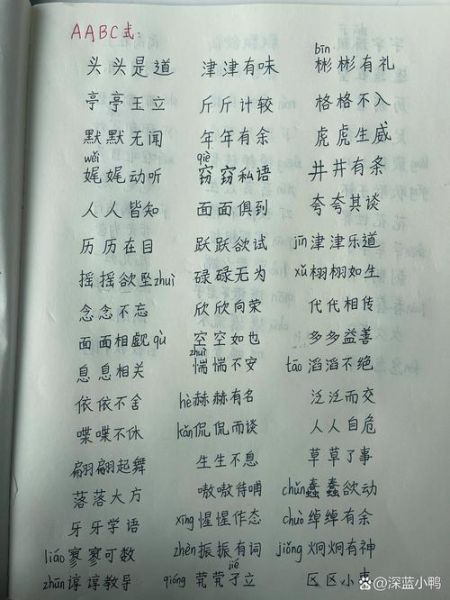 AABC式:
bīn
头头是道 津津有味 彬彬有礼
亭亭玉立 斤斤计较 格格不入
默默无闻 年年有余 虎虎生威
wěi qiè
娓娓动听 窃窃私语 井井有条
人人皆知 面面俱到 夸夸其谈
历历在目 跃跃欲试 jīn津津乐道
摇摇欲坠zhuì 碌碌无为 xǔ栩栩如生
念念不忘 欣欣向荣 代代相传
面面相觑qù 空空如也 多多益善
zhuì
息息相关 惴惴不安 tāo滔滔不绝
依依不舍 hè赫赫有名 泛泛而交
喋喋不休 kǎn侃侃而谈 人人自危
翩翩起舞 生生不息 草草了事
落落大方 嗷嗷待哺 chǔn蠢蠢欲动
牙牙学语 xīng惺惺作态 chuò绰绰有余
liáo寥寥可数 zhèn振振有词 jiǒng炯炯有神
jié
zhūn谆谆教导 qióng茕茕孑立 区区小事
@深蓝小鸭